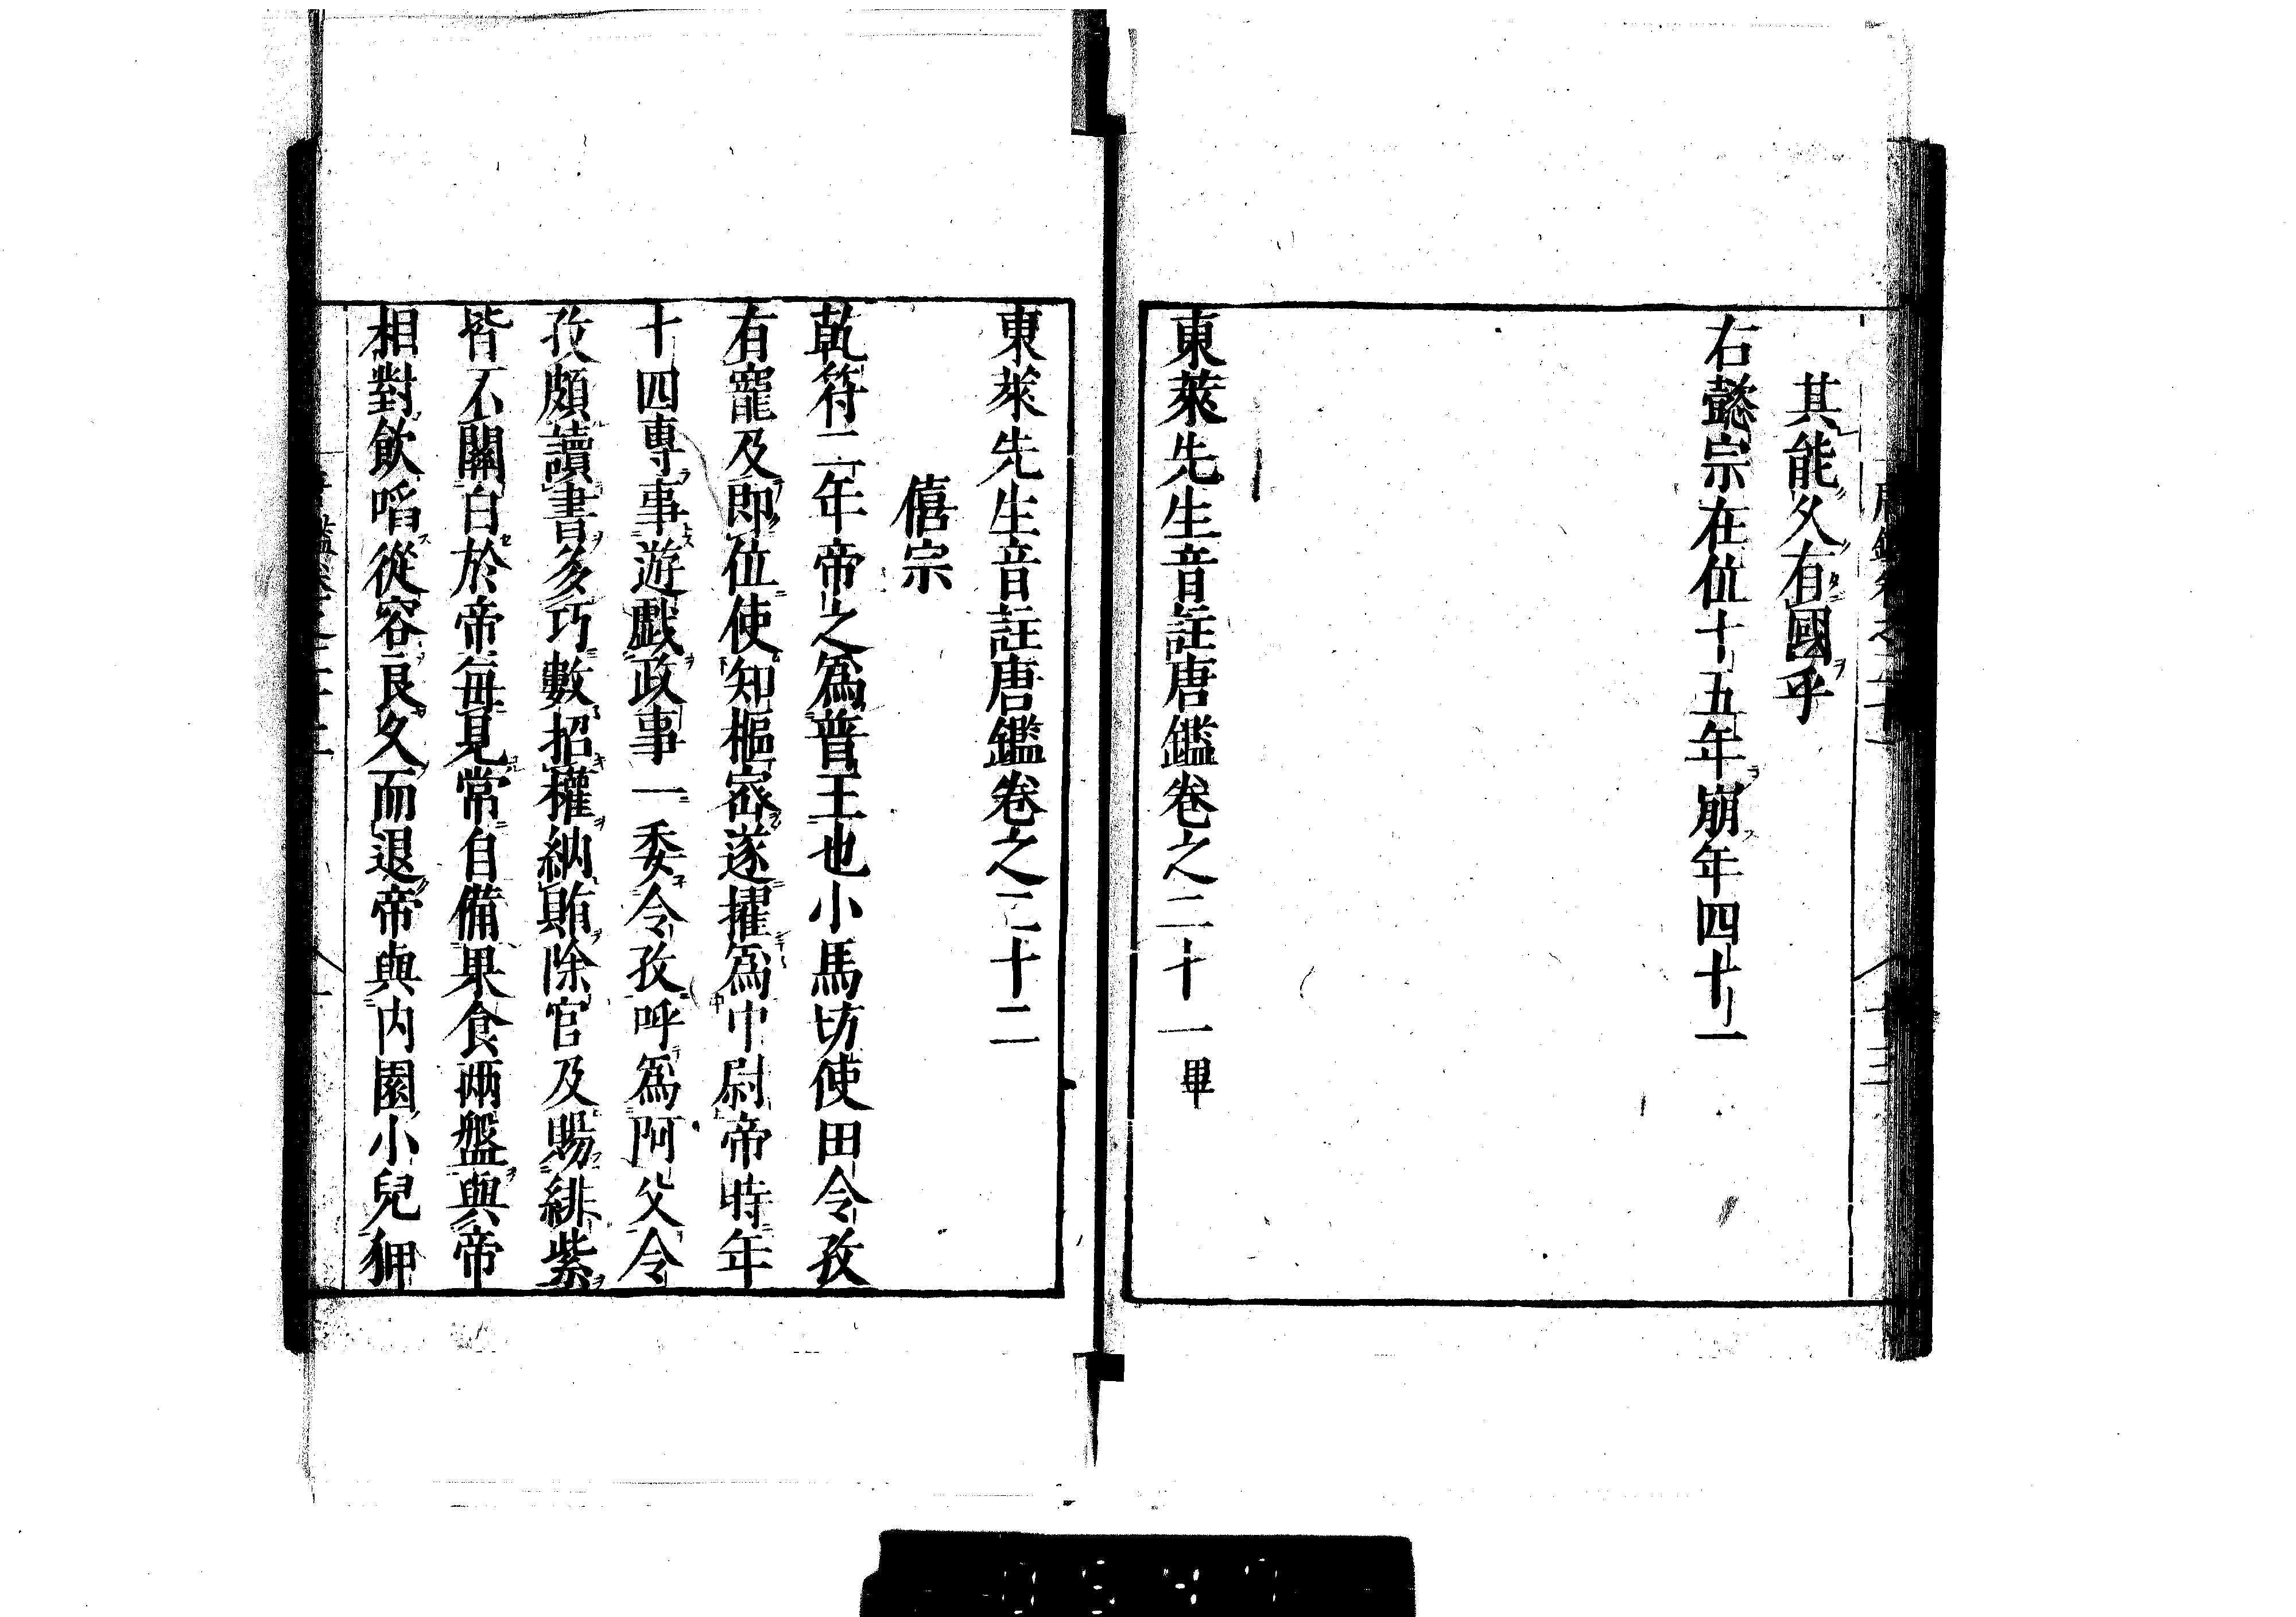 其能久有國乎
右懿宗在位十五年崩年四十一
東萊先生音註唐鑑卷之二十一畢
東萊先生音註唐鑑卷之二十二
僖宗
乾符二年帝之爲普王也小馬坊使田令孜
有寵及即位使知樞密遂擢爲中尉帝時年
十四專事遊戲政事一委令孜呼爲阿父令
孜頗讀書多巧數招權納賄除官及賜緋紫
皆不關白於帝每見常自備果食兩盤與帝
相對飲啗從容良久而退帝與内園小兒狎